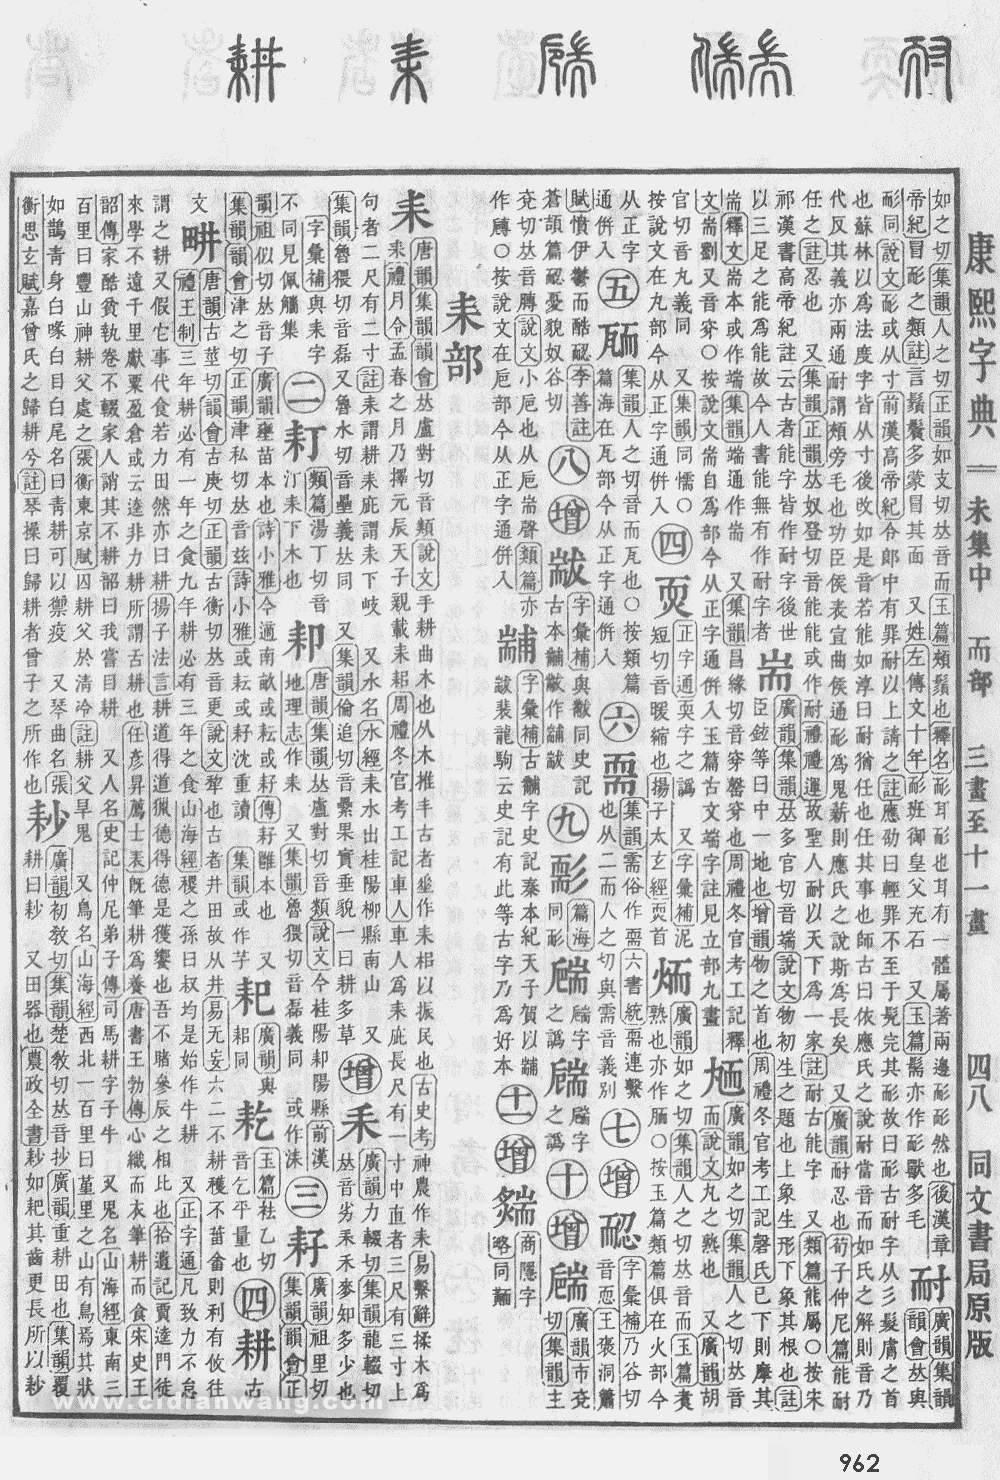 康熙字典 未集中 而部 三畫至十一畫 四八 同文書局原版
如之切集韻人之切正韻如支切𠀤音而玉篇頰鬚也釋名耏耳耏也耳有一體屬著兩邊耏耏然也後漢章
帝紀冒耏之類註言鬚鬢多蒙冒其面 又姓左傳文十年耏班御皇父充石 又玉篇髵亦作耏獸多毛
耐 廣韻集韻韻會𠀤與
耏同說文耏或从寸前漢高帝紀令郎中有罪耐以上請之註應劭曰輕罪不至于髡完其耏故曰耏古耐字从彡髮膚之意
也蘇林以爲法度字皆从寸後改如是音若能如淳曰耐猶任也任其事也師古曰依應氏之說耐當音而如氏之解則音乃
代反其義亦兩通耐謂頰旁毛也功臣侯表宣曲侯通耏爲鬼薪則應氏之說斯爲長矣 又廣韻耐忍也荀子仲尼篇能耐
任之註忍也 又集韻正韻𠀤奴登切音能能或作耐禮禮運故聖人耐以天下爲一家註耐古能字 又類篇熊屬○按宋
祁漢書高帝紀註云古者能字皆作耐字後世
以三足之能爲能故今人書能無有作耐字者
耑 廣韻集韻𠀤多官切音端說文物初生之題也上象生形下象其根也註
臣鉉等曰中一地也增韻物之首也周禮冬官考工記磬氏已下則摩其
耑釋文耑本或作端集韻端通作耑 又集韻昌緣切音穿磬穿也周禮冬官考工記釋
文耑劉又音穿○按說文耑自爲部今从正字通併入玉篇古文端字註見立部九畫
𠇍 廣韻如之切集韻人之切𠀤音
而說文丸之熟也 又廣韻胡
官切音丸義同 又集韻同懦○
按說文在九部今从正字通併入
四 耎 正字通耎字之譌 又字彙補泥
短切音暖縮也揚子太玄經耎首
胹 廣韻如之切集韻人之切𠀤音而玉篇煑
熟也亦作胹○按玉篇類篇俱在火部今
从正字
通併入
五 集韻人之切音而瓦也○按類篇
篇海在瓦部今从正字通併入
六 集韻需俗作 六書統需連繫
也从二而人之切與需音義別
七 增 字彙補乃谷切
音恧王褒洞簫
賦憤伊鬱而酷 李善註
蒼頡篇 憂貌奴谷切
八 增 字彙補與 同史記
古本黼黻作
九 篇海
同耏
字之譌
十 增 廣韻市兗
切集韻主
兗切𠀤音膞說文小巵也从巵耑聲類篇亦
作膞○按說文在巵部今从正字通併入
字彙補古黼字史記秦本紀天子賀以黼
黻裴龍駒云史記有此等古字乃爲好本
十一 增 商隱字
略同
耒部
耒 唐韻集韻韻會𠀤盧對切音類說文手耕曲木也从木推丯古者垂作耒枱以振民也古史考神農作耒易繫辭揉木爲
耒禮月令孟春之月乃擇元辰天子親載耒耜周禮冬官考工記車人車人爲耒庛長尺有一寸中直者三尺有三寸上
句者二尺有二寸註耒謂耕耒庛謂耒下岐 又水名水經耒水出桂陽郴縣南山 又
集韻魯猥切音磊又魯水切音壘義𠀤同 又集韻倫追切音纍果實垂貌一曰耕多草
增 耒 廣韻力輟切集韻龍輟切
𠀤音劣耒禾麥知多少也
字彙補與耒字
不同見佩觿集
二 耓 類篇湯丁切音
汀耒下木也
𦓤 唐韻集韻𠀤盧對切音類說文今桂陽𨛫陽縣前漢
地理志作耒 又集韻魯猥切音磊義同 或作洡
三 耔 廣韻祖里切
集韻韻會正
韻祖似切𠀤音子廣韻壅苗本也詩小雅今適南畝或耘或耔傳耔雝本也 又
集韻韻會津之切正韻津私切𠀤音兹詩小雅或耘或耔沈重讀 集韻或作芓
𦓧 廣韻與
耜同
𦓨 玉篇袪乙切
音乞平量也
四 耕 古
文畊 唐韻古莖切韻會古庚切正韻古衡切𠀤音更說文犂也古者井田故从井易无妄六二不耕穫不菑畬則利有攸往
禮王制三年耕必有一年之食九年耕必有三年之食山海經稷之孫曰叔均是始作牛耕 又正字通凡致力不怠
謂之耕又假它事代食若力田然亦曰耕揚子法言耕道得道獵德得德是獲饗也吾不睹參辰之相比也拾遺記賈逵門徒
來學不遠千里獻粟盈倉或云逵非力耕所謂舌耕也任彦昇薦士表旣筆耕爲養唐書王勃傳心織而衣筆耕而食宋史王
韶傳家酷貧執卷不輟家人誚其不耕韶曰我嘗目耕 又人名史記仲尼弟子傳司馬耕字子牛 又鬼名山海經東南三
百里曰豐山神耕父處之張衡東京賦囚耕父於清泠註耕父旱鬼 又鳥名山海經西北一百里曰堇里之山有鳥焉其狀
如鵲靑身白喙白目白尾名曰靑耕可以禦疫 又琴曲名張
衡思玄賦嘉曾氏之歸耕兮註琴操曰歸耕者曾子之所作也
耖 廣韻初敎切集韻楚敎切𠀤音抄廣韻重耕田也集韻覆
耕曰耖 又田器也農政全書耖如耙其齒更長所以耖
www.cidianwang.com
962